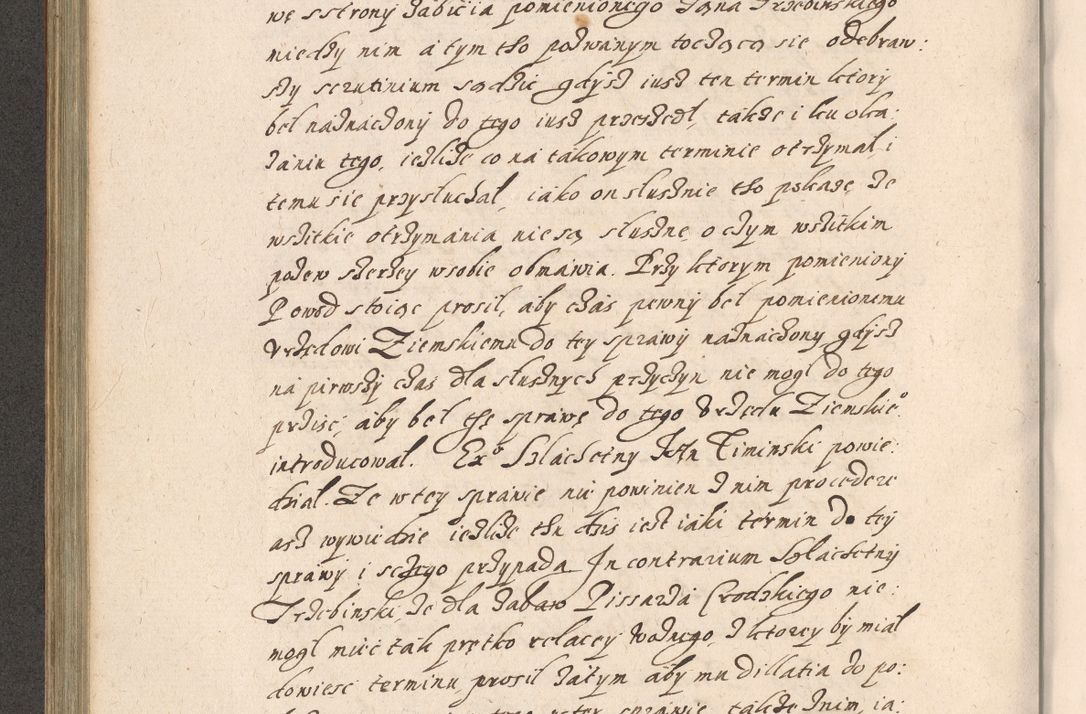 we sstrony zabicia pomienionego Jana Trzebinskiego
miedzy nim a tym tho pozwanym toczącą sie odebraw:
szy scrutinium sądzic gdysz iusz ten termin ktory
beł naznaczony do tego iusz przeszedł, takze i ku oka:
zaniu tego, iezlize co na takowym terminie otrzymał i
temu sie przysłuchał, iako on słusznie tho pokaze, ze
wszitkie otrzymania nie są słuszne, o czym wszitkim
pozew szerzey w sobie obmawia. Przy ktorym pomieniony
Powod stoiąc prosił, aby czas pewny beł pomienionemu
Vrzędowi Ziemskiemu do tey sprawy naznaczony gdysz
na pirwszy czas dla słusznych przyczyn nie mogł do tego
przisc, aby beł thę sprawę do tego Vrzędu Ziemskie°
introducował. Ex° Szlachetny Jan Timinski powie:
dział. Ze w tey sprawie nie powinien z nim procedere
asz wywiedzie iezlize thu dzis iest iaki termin do tey
sprawy i sczego przypada. In contrarium Szlachetny
Trzebinski, ze dla zabaw Pissarza Grodzkiego nie:
mogł miec tak prętko relacey Woznego, z ktorey by miał
dowiesc terminu, prosił zatym aby mu dillatia do po: